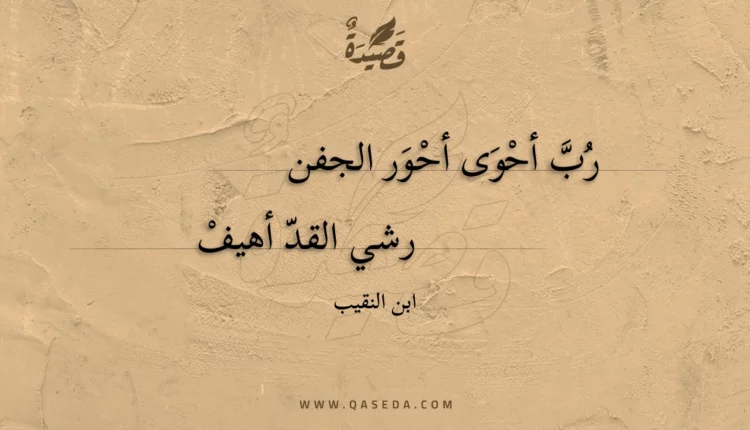 قَصِيْدَةٌ
رُبَّ أحْوَى أحْوَر الجفن
رشي القدّ أهيفْ
ابن النقيب
WWW.QASEDA.COM